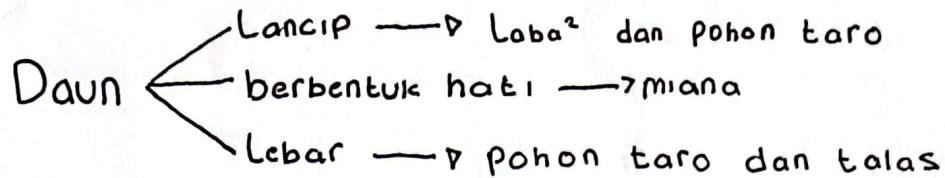 Lancip → Laba² dan pohon taro
Daun berbentuk hati → miana
Lebar → pohon taro dan talas